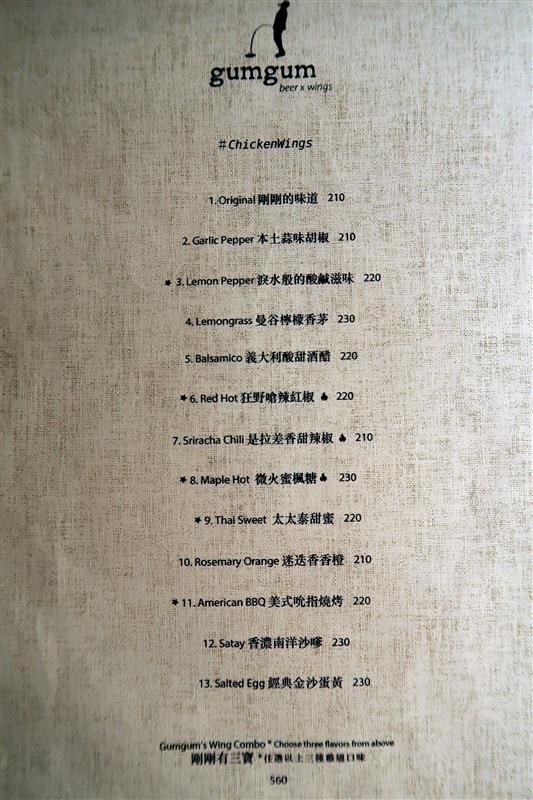 gumgum
beer x wings
#ChickenWings
1. Original 剛剛的味道 210
2. Garlic Pepper 本土蒜味胡椒 210
★ 3. Lemon Pepper 淚水般的酸鹹滋味 220
4. Lemongrass 曼谷檸檬香茅 230
5. Balsamico 義大利酸甜酒醋 220
★ 6. Red Hot 狂野嗆辣紅椒 220
7. Sriracha Chili 是拉差香甜辣椒 210
★ 8. Maple Hot 微火蜜楓糖 230
★ 9. Thai Sweet 太太泰甜蜜 220
10. Rosemary Orange 迷迭香香橙 210
★ 11. American BBQ 美式吮指燒烤 220
12. Satay 香濃南洋沙嗲 230
13. Salted Egg 經典金沙蛋黃 230
Gumgum's Wing Combo * Choose three flavors from above
剛剛有三寶 *任選以上三種雞翅口味
560